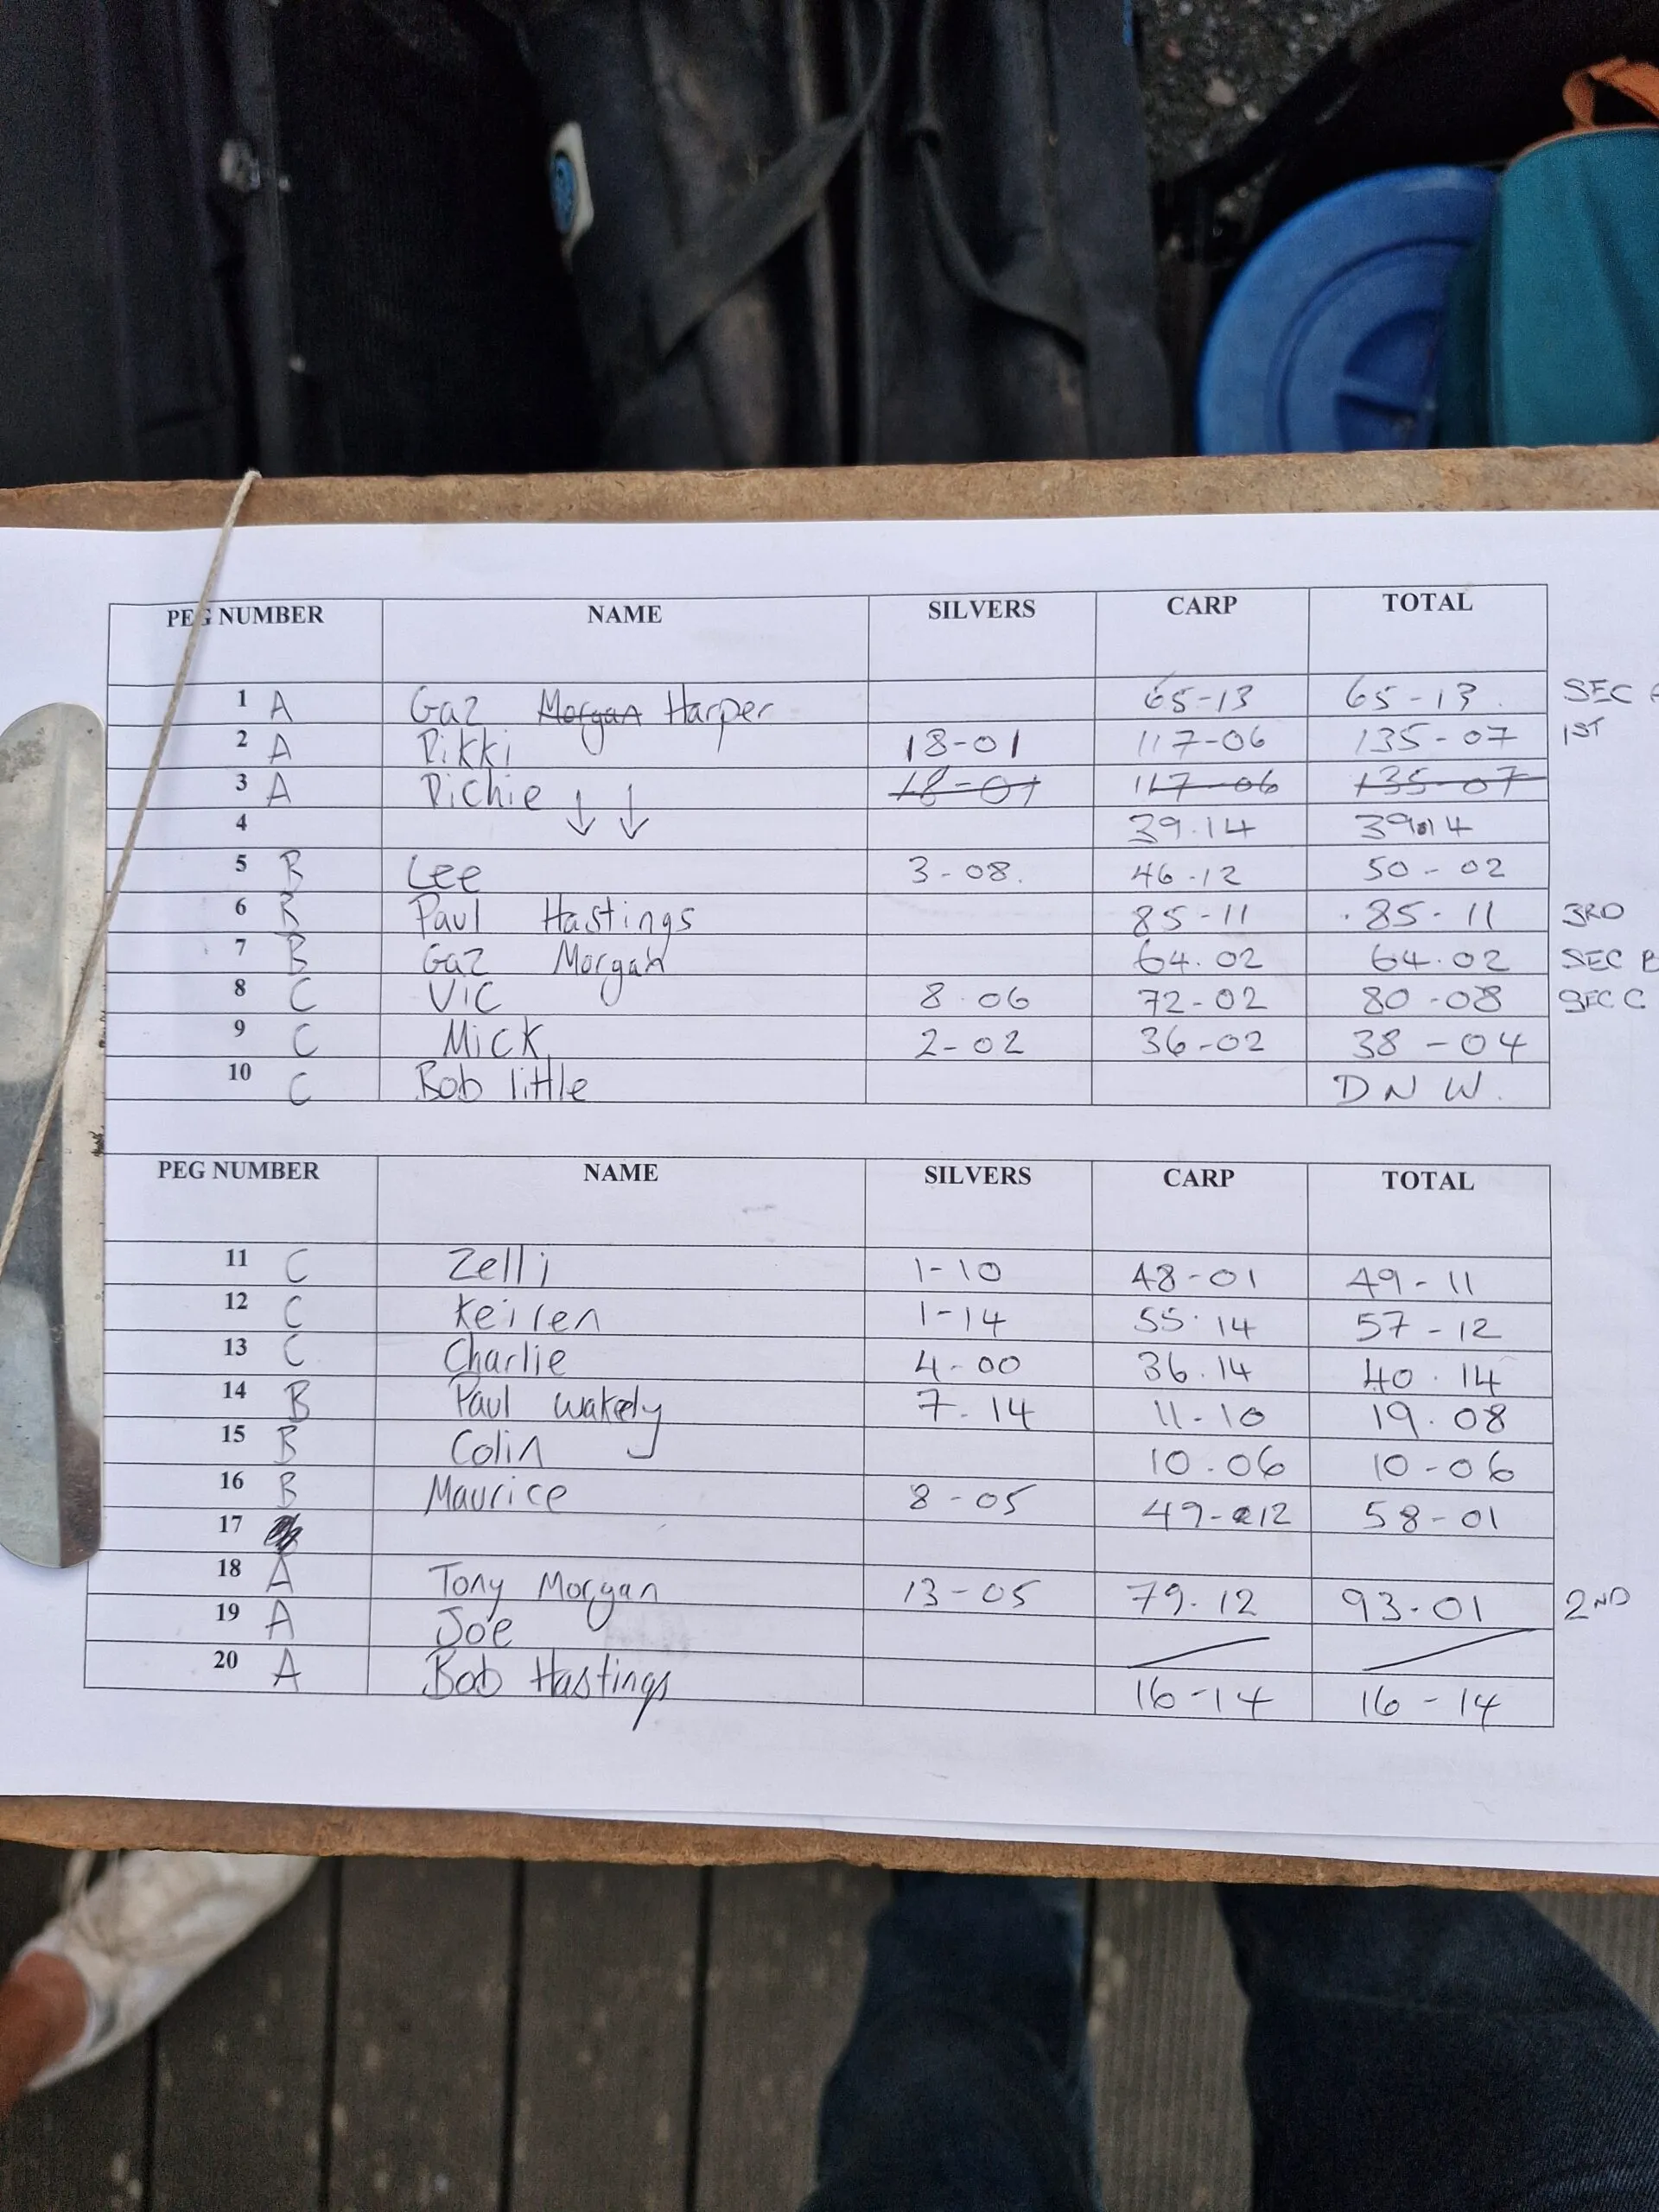 PEG NUMBER NAME SILVERS CARP TOTAL
1 A Gaz Morgan Harper 65-13 65-13 SEC A
2 A Rikki 18-01 117-06 135-07 1ST
3 A Richie ↓ ↓ 18-01 117-06 135-07
4 39.14 39.14
5 B Lee 3-08. 46.12 50-02
6 B Paul Hastings 85-11 85-11 3RD
7 B Gaz Morgan 64.02 64.02 SEC B
8 C Vic 8.06 72-02 80-08 SEC C
9 C Mick 2-02 36-02 38-04
10 C Bob little D N W.
PEG NUMBER NAME SILVERS CARP TOTAL
11 C Zelli 1-10 48-01 49-11
12 C Keiren 1-14 55.14 57-12
13 C Charlie 4-00 36.14 40.14
14 B Paul Wakely 7-14 11-10 19.08
15 B Colin 10.06 10-06
16 B Maurice 8-05 49-12 58-01
17
18 A Tony Morgan 13-05 79.12 93-01 2ND
19 A Joe
20 A Bob Hastings 16-14 16-14